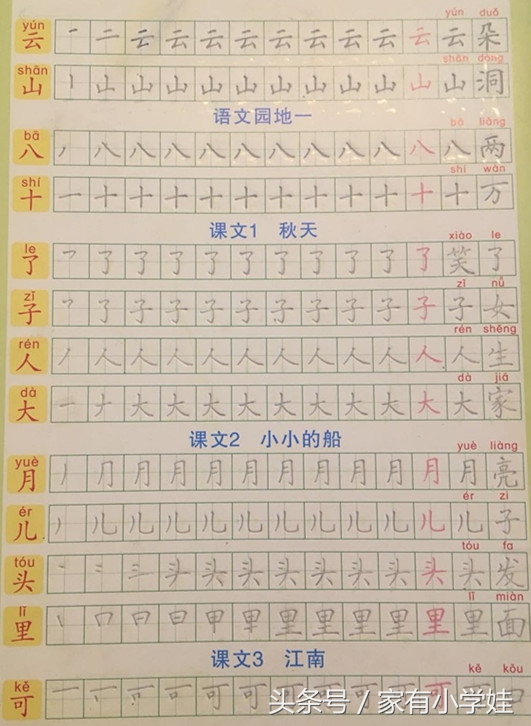 yún duǒ
yún
云 一 二 云 云 云 云 云 云 云 云 云 云 朵
shān dòng
shān
山 丨 山 山 山 山 山 山 山 山 山 山 山 洞
语文园地一
bā liǎng
bā
八 丿 八 八 八 八 八 八 八 八 八 八 八 两
shí wàn
shí
十 一 十 十 十 十 十 十 十 十 十 十 十 万
课文1 秋天
xiào le
le
了 乛 了 了 了 了 了 了 了 了 了 了 笑 了
zǐ nǚ
zǐ
子 乛 了 子 子 子 子 子 子 子 子 子 子 女
rén shēng
rén
人 丿 人 人 人 人 人 人 人 人 人 人 人 生
dà jiā
dà
大 一 ナ 大 大 大 大 大 大 大 大 大 大 家
课文2 小小的船
yuè liàng
yuè
月 丿 冂 月 月 月 月 月 月 月 月 月 月 亮
ér zi
ér
儿 丿 儿 儿 儿 儿 儿 儿 儿 儿 儿 儿 儿 子
tóu fa
tóu
头 丶 头 头 头 头 头 头 头 头 头 发
lǐ miàn
lǐ
里 丨 口 曰 日 甲 里 里 里 里 里 里 面
课文3 江南
kě kǒu
kě
可 一 可 可 可 可
头条号 / 家有小学娃